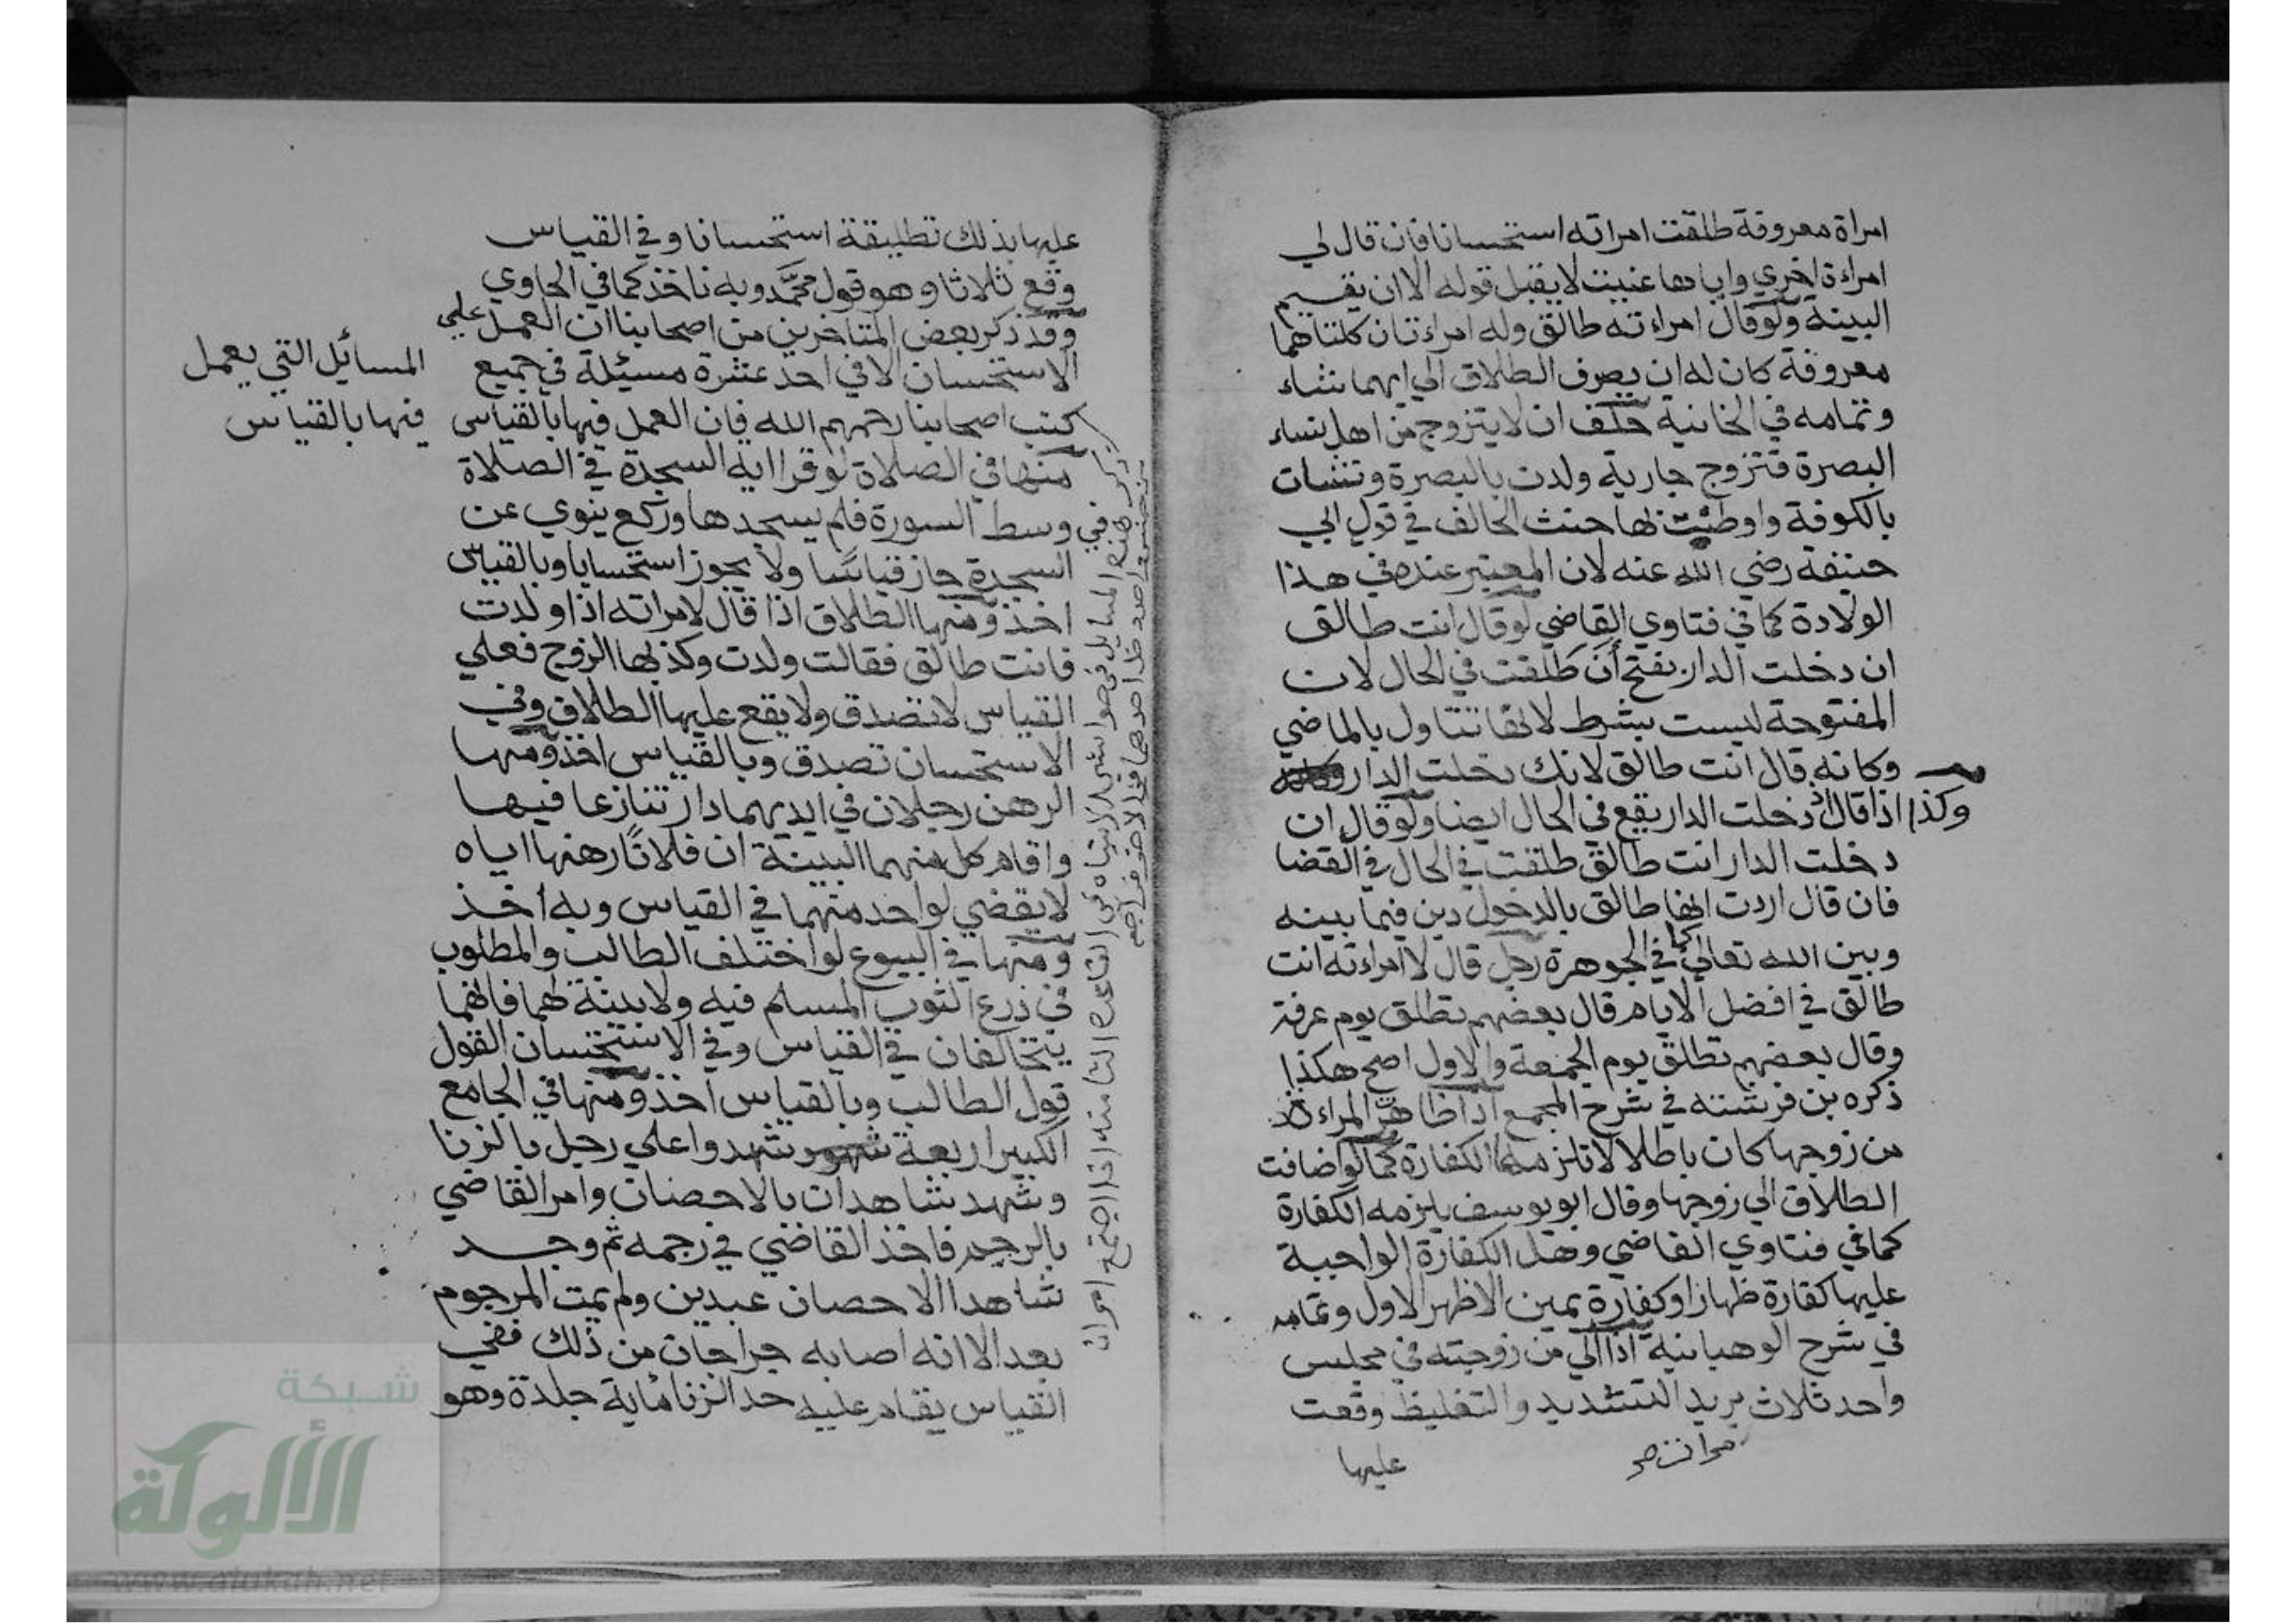 امراة معروفة طلقت امراته استحسانا فان قال لي
امراءة اخري واياها عنيت لا يقبل قوله الا ان يقيم
البينة ولو قال امراءته طالق وله امراءتان كلتاهما
معروفة كان له ان يصرف الطلاق الي ايهما شاء
وتمامه في الخانية حلف ان لا يتزوج من اهل نساء
البصرة فتزوج جارية ولدت بالبصرة ونشات
بالكوفة واوطنت بها حنث الحالف في قول ابي
حنيفة رضي الله عنه لان المعتبر عنده في هذا
الولادة كما في فتاوي القاضي لو قال انت طالق
ان دخلت الدار بفتح أن طلقت في الحال لان
المفتوحة ليست بشرط لانها تتناول بالماضي
وكانه قال انت طالق لانك دخلت الدار
وكذا اذا قال اذ دخلت الدار يقع في الحال ايضا ولو قال ان
دخلت الدار انت طالق طلقت في الحال في القضا
فان قال اردت انها طالق بالدخول دين فيما بينه
وبين الله تعالي كما في الجوهرة رجل قال لامراءته انت
طالق في افضل الايام قال بعضهم تطلق يوم عرفة
وقال بعضهم تطلق يوم الجمعة والاول اصح هكذا
ذكره بن فرشته في شرح المجمع اذا ظاهر المراءة
من زوجها كان باطلا لا تلزمها الكفارة كما لو اضافت
الطلاق الي زوجها وقال ابو يوسف يلزمه الكفارة
كما في فتاوي القاضي وهل الكفارة الواجبة
عليها كفارة ظهار او كفارة يمين الاظهر الاول وتمامه
في شرح الوهبانية اذا الي من زوجته في مجلس
واحد ثلاث يريد التشديد والتغليظ وقعت
عليها
عليها بذلك تطليقة استحسانا وفي القياس
وقع ثلاثا وهو قول محمد وبه ناخذ كما في الحاوي
وقد ذكر بعض المتاخرين من اصحابنا ان العمل علي
الاستحسان الا في احد عشرة مسئلة في جميع
كتب اصحابنا رحمهم الله فان العمل فيها بالقياس
المسائل التي يعمل
فيها بالقياس
منها في الصلاة لو قرا اية السجدة في الصلاة
في وسط السورة فلم يسجدها وركع ينوي عن
السجدة جاز قياسا ولا يجوز استحسانا وبالقياس
اخذ ومنها الطلاق اذا قال لامراته اذا ولدت
فانت طالق فقالت ولدت وكذبها الزوج فعلي
القياس لا تصدق ولا يقع عليها الطلاق وفي
الاستحسان تصدق وبالقياس اخذ ومنها
الرهن رجلان في ايديهما دار تنازعا فيها
واقام كل منهما البينة ان فلانا رهنها اياه
لا يقضي لواحد منهما في القياس وبه أخذ
ومنها في البيوع لو اختلف الطالب والمطلوب
في ذرع الثوب المسلم فيه ولا بينة لهما فانهما
يتخالفان في القياس وفي الاستحسان القول
قول الطالب وبالقياس اخذ ومنها في الجامع
الكبير اربعة شهود شهدوا علي رجل بالزنا
وشهد شاهدان بالاحصان وامر القاضي
بالرجم فاخذ القاضي في رجمه ثم وجد
شاهدا الاحصان عبدين ولم يمت المرجوم
بعد الا انه اصابه جراحات من ذلك ففي
القياس يقام عليه حد الزنا ماية جلدة وهو
شبكة
الألوكة
www.alukah.net